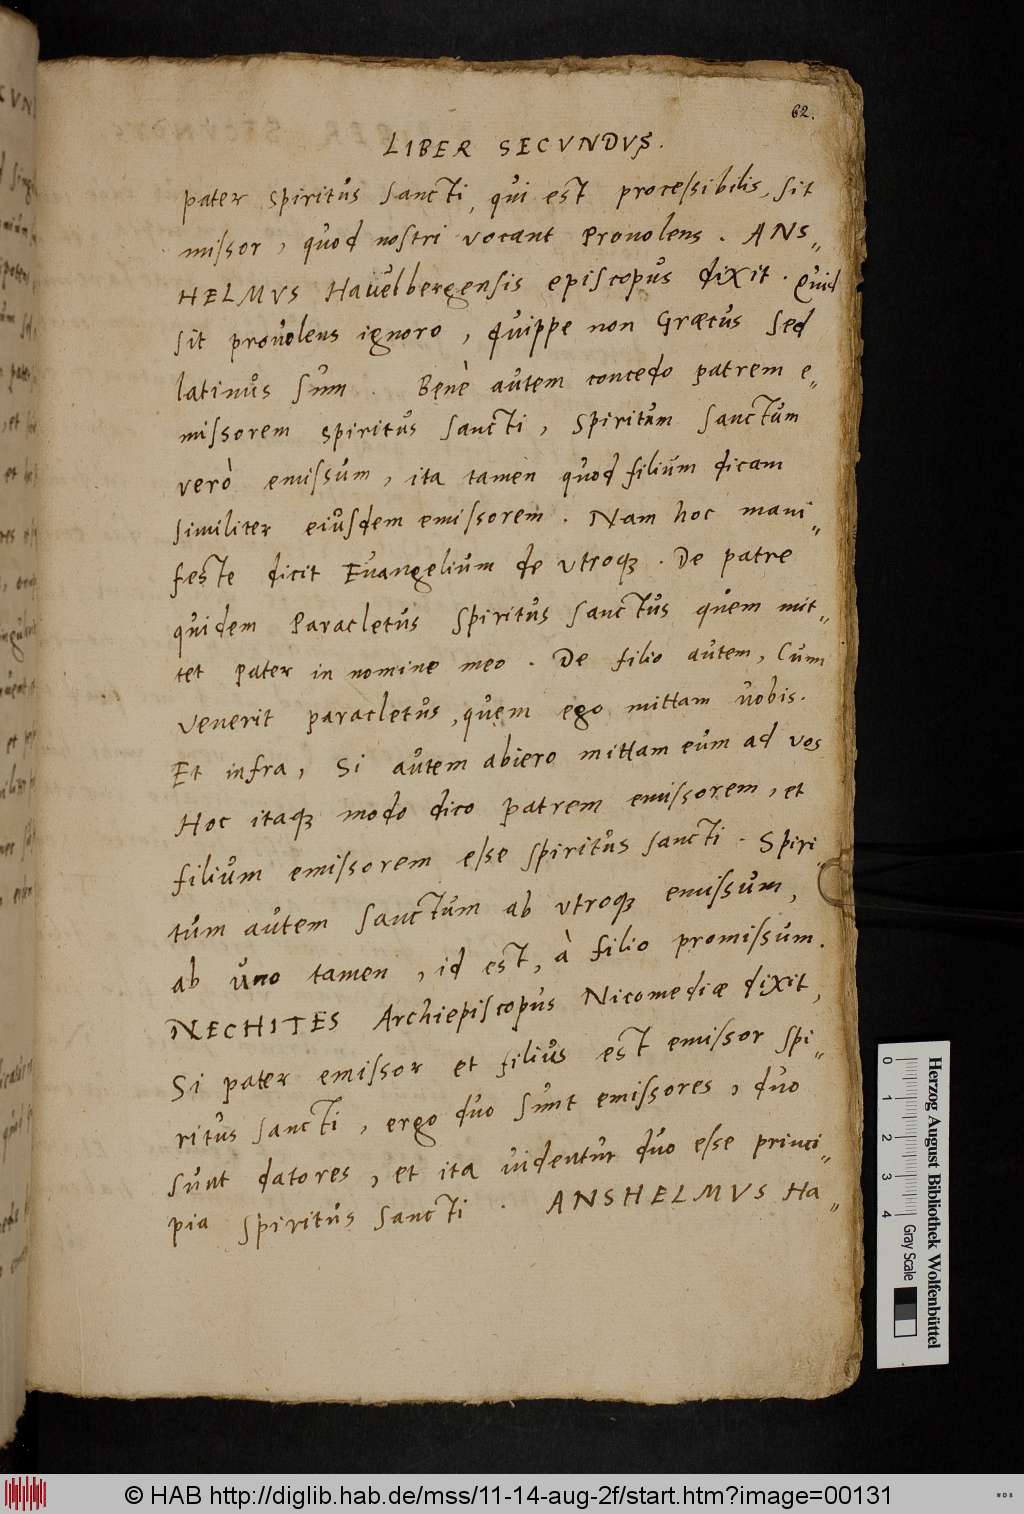 62.
LIBER SECVNDVS.
pater spiritus sancti, qui est processibilis, sit
missor, quod nostri vocant Prouolens. ANS„
HELMVS Hauelbergensis episcopus dixit. Quid
sit prouolens ignoro, quippe non Græcus sed
latinus sum. Benè autem concedo patrem e„
missorem spiritus sancti, spiritum sanctum
verò emissum, ita tamen quod filium dicam
similiter eiusdem emissorem. Nam hoc mani„
feste dicit Euangelium de vtroqꝫ. De patre
quidem Paracletus spiritus sanctus quem mit„
tet pater in nomine meo. De filio autem, Cum
venerit paracletus, quem ego mittam uobis.
Et infra, Si autem abiero mittam eum ad vos
Hoc itaqꝫ modo dico patrem emissorem, et
filium emissorem esse spiritus sancti. Spiri„
tum autem sanctum ab vtroqꝫ emissum,
ab uno tamen, id est, à filio promissum.
NECHITES Archiepiscopus Nicomediæ dixit,
Si pater emissor et filius est emissor spi„
ritus sancti, ergo duo sunt emissores, duo
sunt datores, et ita uidentur duo esse princi„
pia spiritus sancti. ANSHELMVS Ha„
Herzog August Bibliothek Wolfenbüttel
0 1 2 3 4 Gray Scale
© HAB http://diglib.hab.de/mss/11-14-aug-2f/start.htm?image=00131